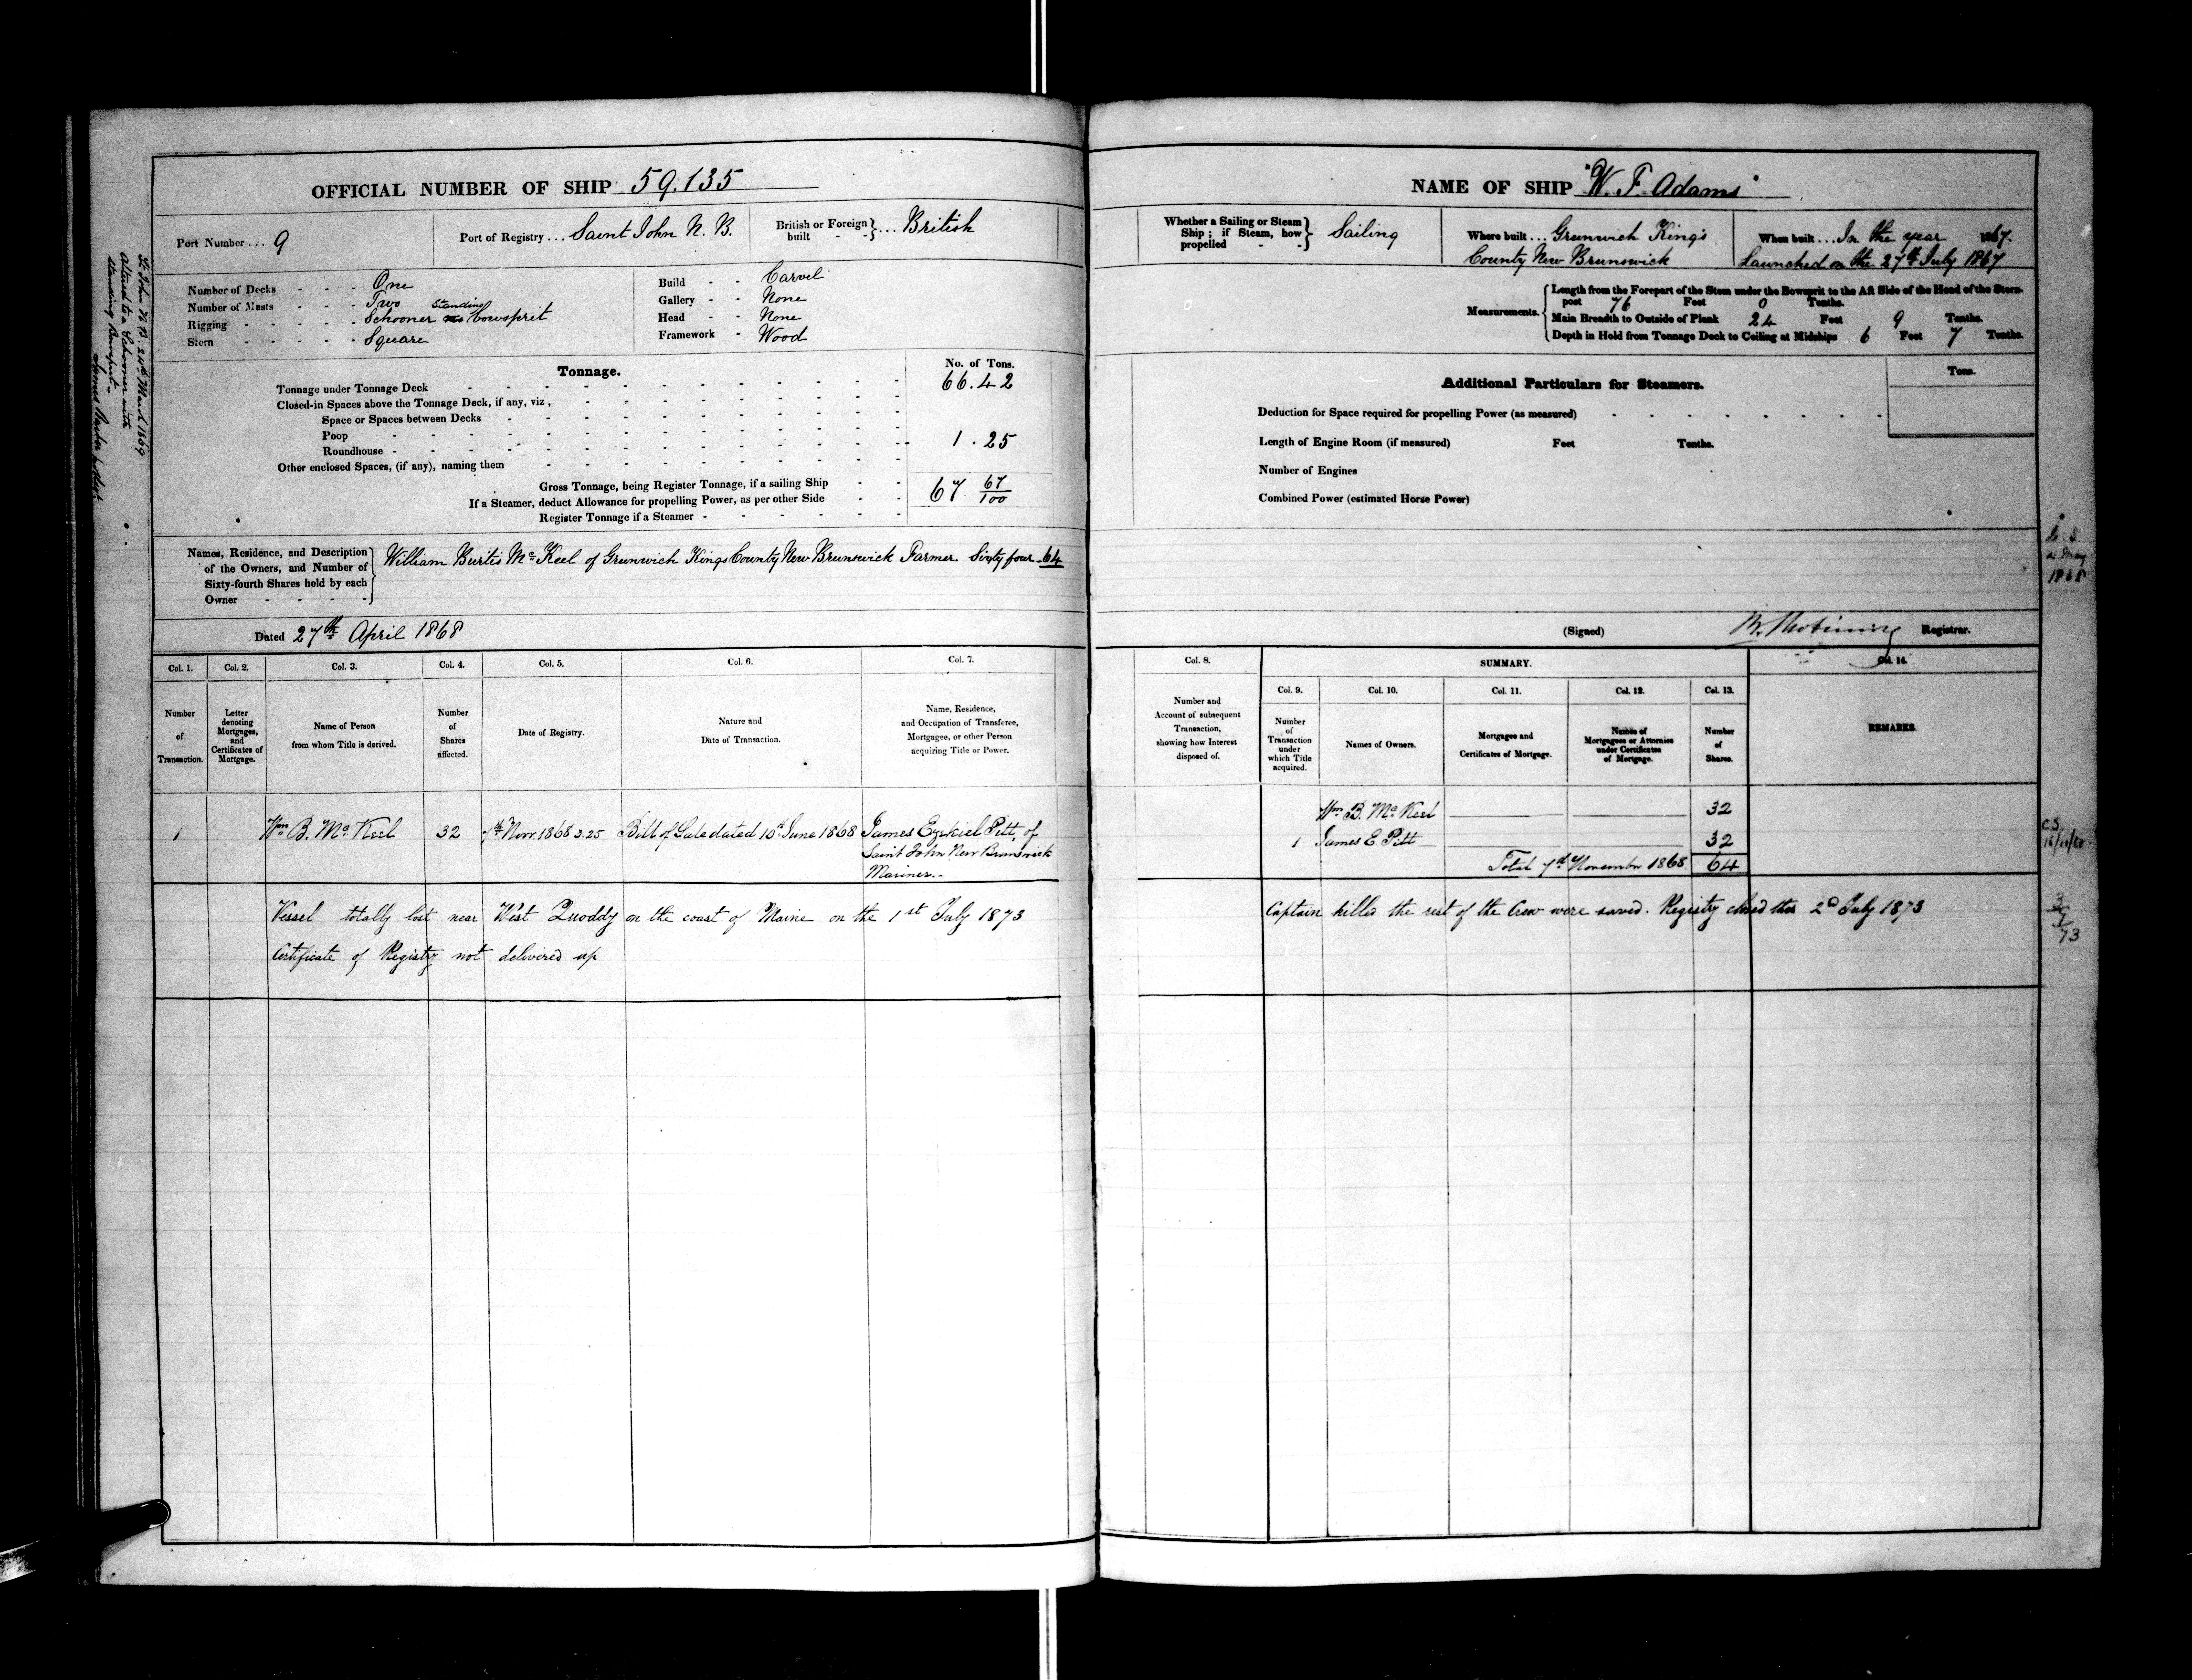 OFFICIAL NUMBER OF SHIP 59.135
Port Number ... 9
Port of Registry ... Saint John N. B.
British or Foreign built - - } ... British
Number of Decks - - - - One
Number of Masts - - - - Two
Rigging - - - - - Schooner Standing Bowsprit
Stern - - - - - Square
Build - - Carvel
Gallery - - None
Head - - None
Framework - Wood
Tonnage.
No. of Tons.
Tonnage under Tonnage Deck 66.42
Closed-in Spaces above the Tonnage Deck, if any, viz,
Space or Spaces between Decks
Poop
Roundhouse 1.25
Other enclosed Spaces, (if any), naming them
Gross Tonnage, being Register Tonnage, if a sailing Ship 67 67/100
If a Steamer, deduct Allowance for propelling Power, as per other Side
Register Tonnage if a Steamer
Names, Residence, and Description
of the Owners, and Number of
Sixty-fourth Shares held by each
Owner
William Burtis McKeel of Greenwich Kings County New Brunswick Farmer. Sixty four - 64
Dated 27th April 1868
St John N B 24th March 1869
altered to a Schooner with
standing Bowsprit -
Col. 1. Col. 2. Col. 3. Col. 4. Col. 5. Col. 6. Col. 7.
Number of Transaction.
Letter denoting Mortgages, and Certificates of Mortgage.
Name of Person from whom Title is derived.
Number of Shares affected.
Date of Registry.
Nature and Date of Transaction.
Name, Residence, and Occupation of Transferee, Mortgagee, or other Person acquiring Title or Power.
1 Wm B. McKeel 32 7th Novr. 1868 3.25 Bill of Sale dated 10th June 1868 James Ezekiel Pitt, of
Saint John New Brunswick
Mariner.-
Vessel totally lost near West Quoddy on the coast of Maine on the 1st July 1873
Certificate of Registry not delivered up
NAME OF SHIP "W. F. Adams"
Whether a Sailing or Steam
Ship; if Steam, how
propelled - - } Sailing
Where built ... Greenwich King's
County New Brunswick
When built ... In the year 1867.
Launched on the 27th July 1867
Measurements.
Length from the Forepart of the Stem under the Bowsprit to the Aft Side of the Head of the Stern-
post 76 Feet 0 Tenths.
Main Breadth to Outside of Plank 24 Feet 9 Tenths.
Depth in Hold from Tonnage Deck to Ceiling at Midships 6 Feet 7 Tenths.
Additional Particulars for Steamers.
Tons.
Deduction for Space required for propelling Power (as measured)
Length of Engine Room (if measured) Feet Tenths.
Number of Engines
Combined Power (estimated Horse Power)
1868
(Signed) Registrar.
Col. 8. SUMMARY. Col. 14.
Col. 9. Col. 10. Col. 11. Col. 12. Col. 13.
Number and Account of subsequent Transaction, showing how Interest disposed of.
Number of Transaction under which Title acquired.
Names of Owners.
Mortgages and Certificates of Mortgage.
Names of Mortgagees or Attornies under Certificates of Mortgage.
Number of Shares.
REMARKS.
Wm B. McKeel 32
1 James E Pitt 32
Total 7th November 1868 64
C.S.
Captain killed the rest of the Crew were saved. Registry closed this 2d July 1873
3/7/73